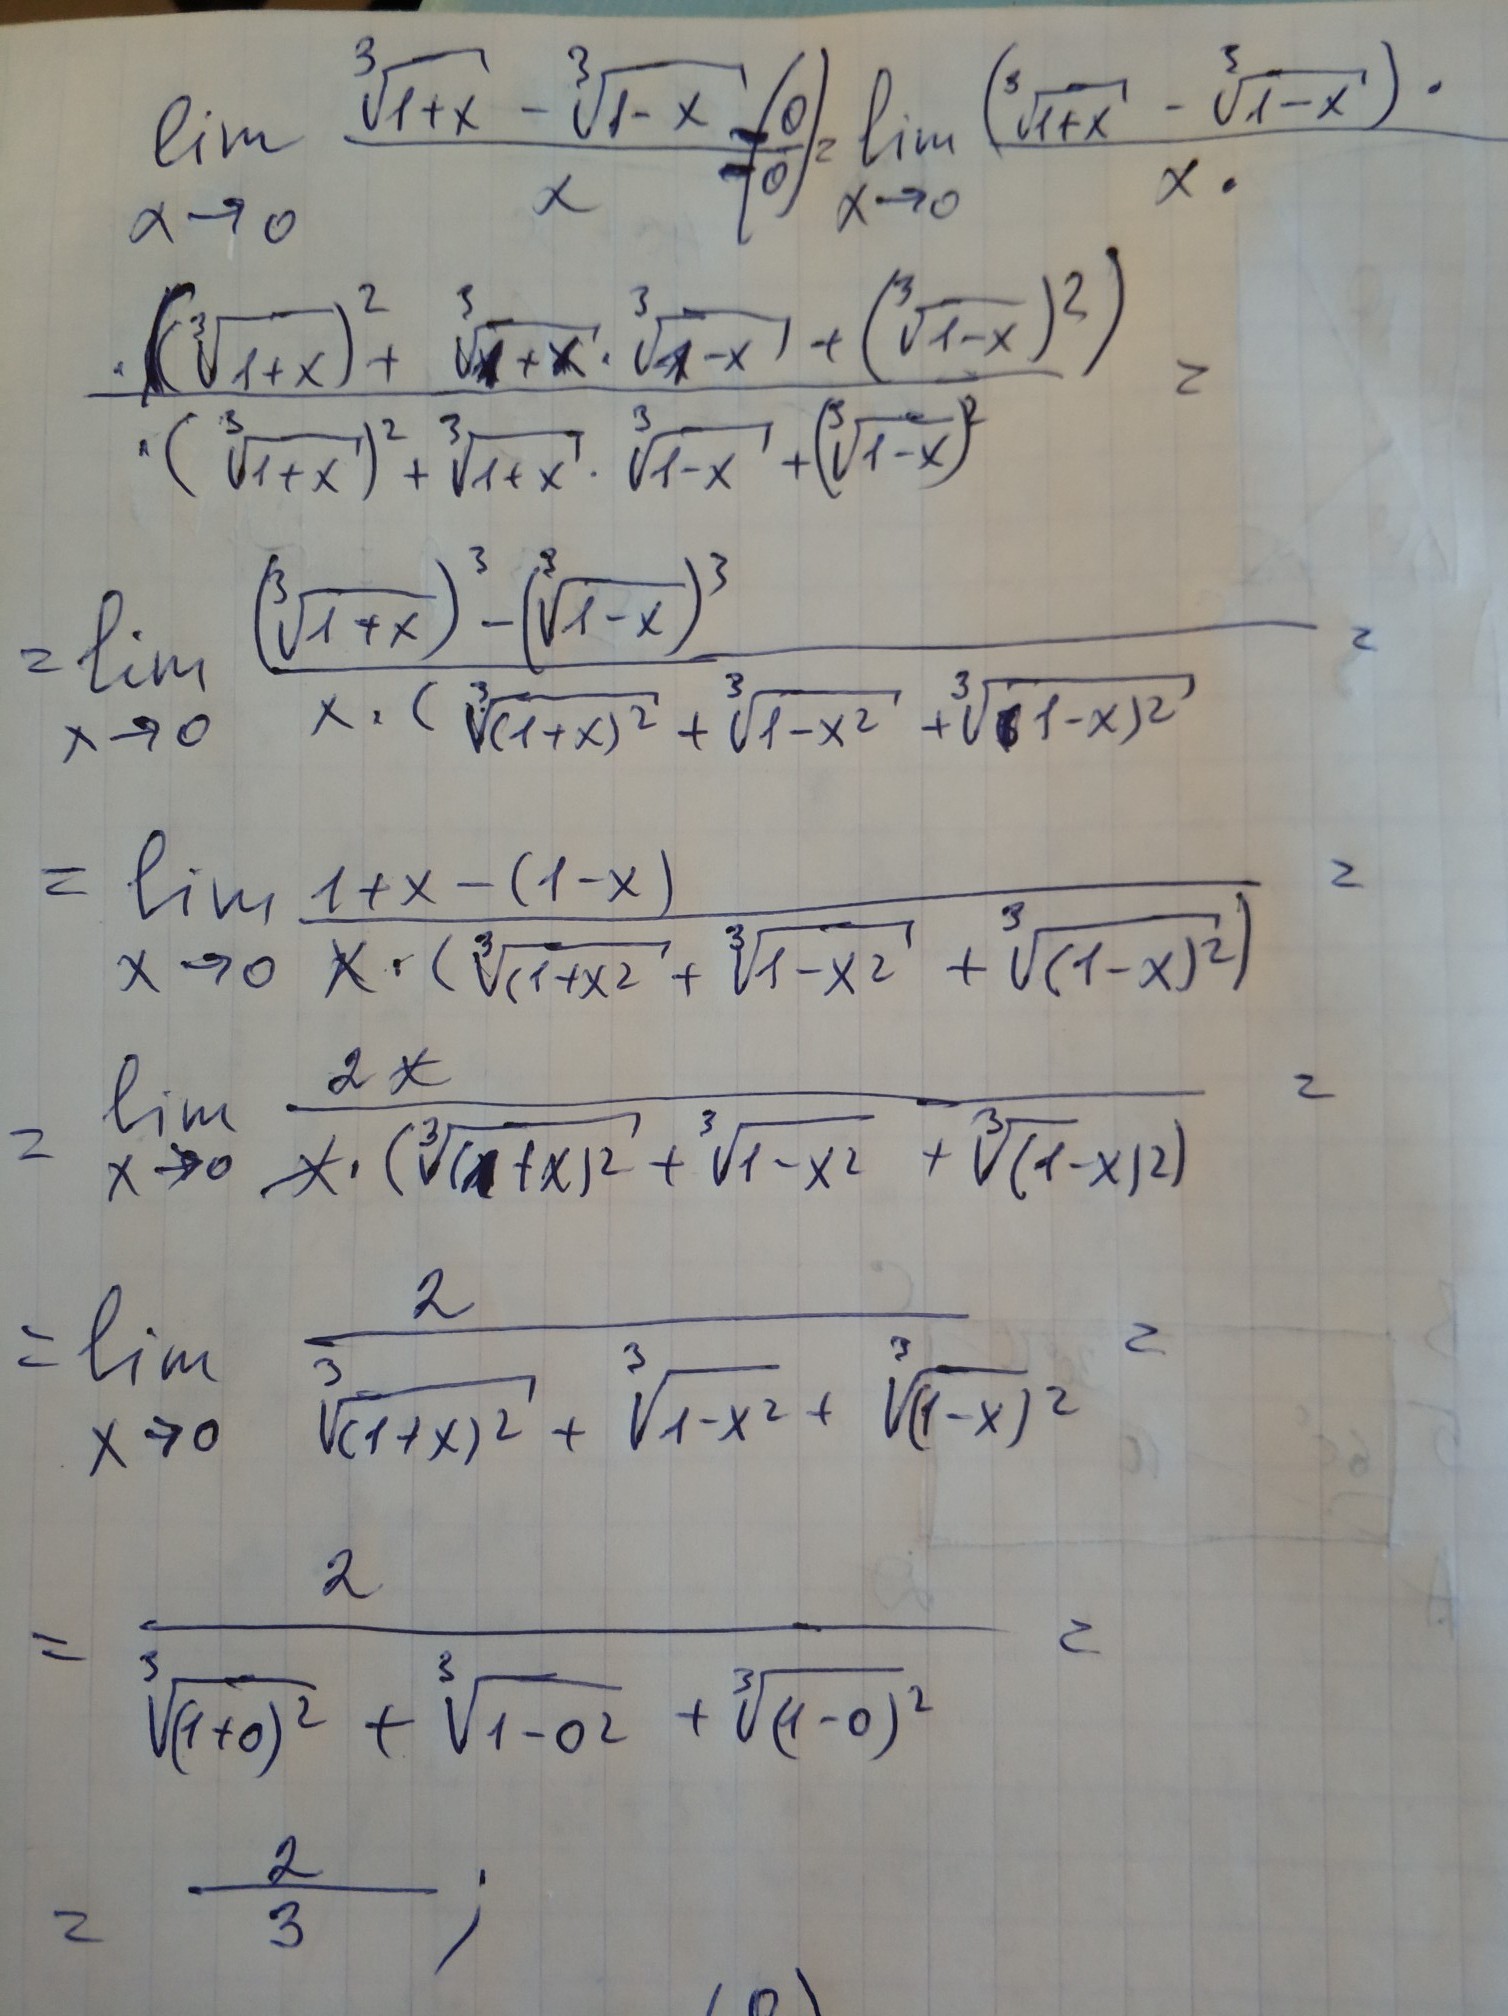 lim x→0 (∛(1+x) − ∛(1−x)) / x = (0/0) = lim x→0 (∛(1+x) − ∛(1−x)) · / x ·
· ((∛(1+x))² + ∛(1+x) · ∛(1−x) + (∛(1−x))²) / · (∛(1+x))² + ∛(1+x) · ∛(1−x) + (∛(1−x))² =
= lim x→0 ((∛(1+x))³ − (∛(1−x))³) / x · (∛((1+x)²) + ∛(1−x²) + ∛((1−x)²) =
= lim x→0 (1+x − (1−x)) / x · (∛((1+x²) + ∛(1−x²) + ∛((1−x)²)) =
= lim x→0 2x / x · (∛((1+x)²) + ∛(1−x²) + ∛((1−x)²)) =
= lim x→0 2 / (∛((1+x)²) + ∛(1−x²) + ∛(1−x)²) =
= 2 / (∛((1+0)²) + ∛(1−0²) + ∛(1−0)²) =
= 2/3 ;